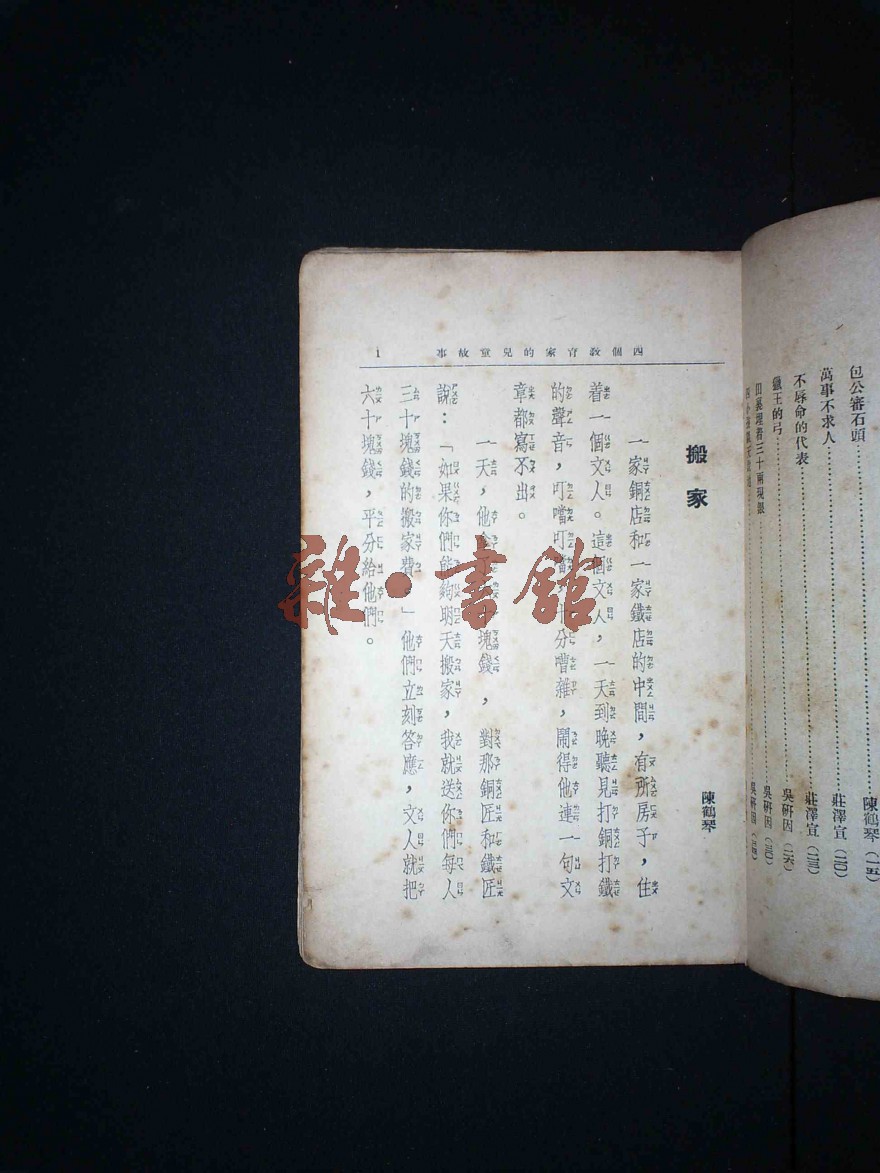 包公審石頭……陳鶴琴(一五)
萬事不求人……莊澤宣(二〇)
不辱命的代表……莊澤宣(二三)
獵王的弓……吳硏因(二六)
田裏埋着三十兩現銀……吳硏因(三〇)
吳硏因(三四)
四個教育家的兒童故事 1
搬家 陳鶴琴
一家銅店和一家鐵店的中間,有所房子,住
着一個文人。這個文人,一天到晚聽見打銅打鐵
的聲音,叮噹叮噹,十分嘈雜,鬧得他連一句文
章都寫不出。
一天,他 塊錢,對那銅匠和鐵匠
說:「如果你們能夠明天搬家,我就送你們每人
三十塊錢的搬家費。」他們立刻答應,文人就把
六十塊錢,平分給他們。
雜·書館